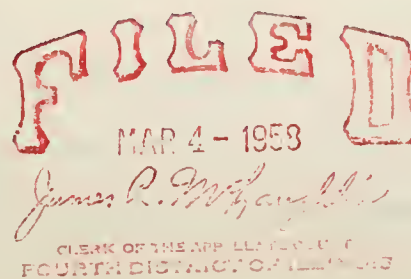 FILED
MAR 4 - 1958
James R. McLaughlin
CLERK OF THE APPELLATE COURT
FOURTH DISTRICT OF ILLINOIS